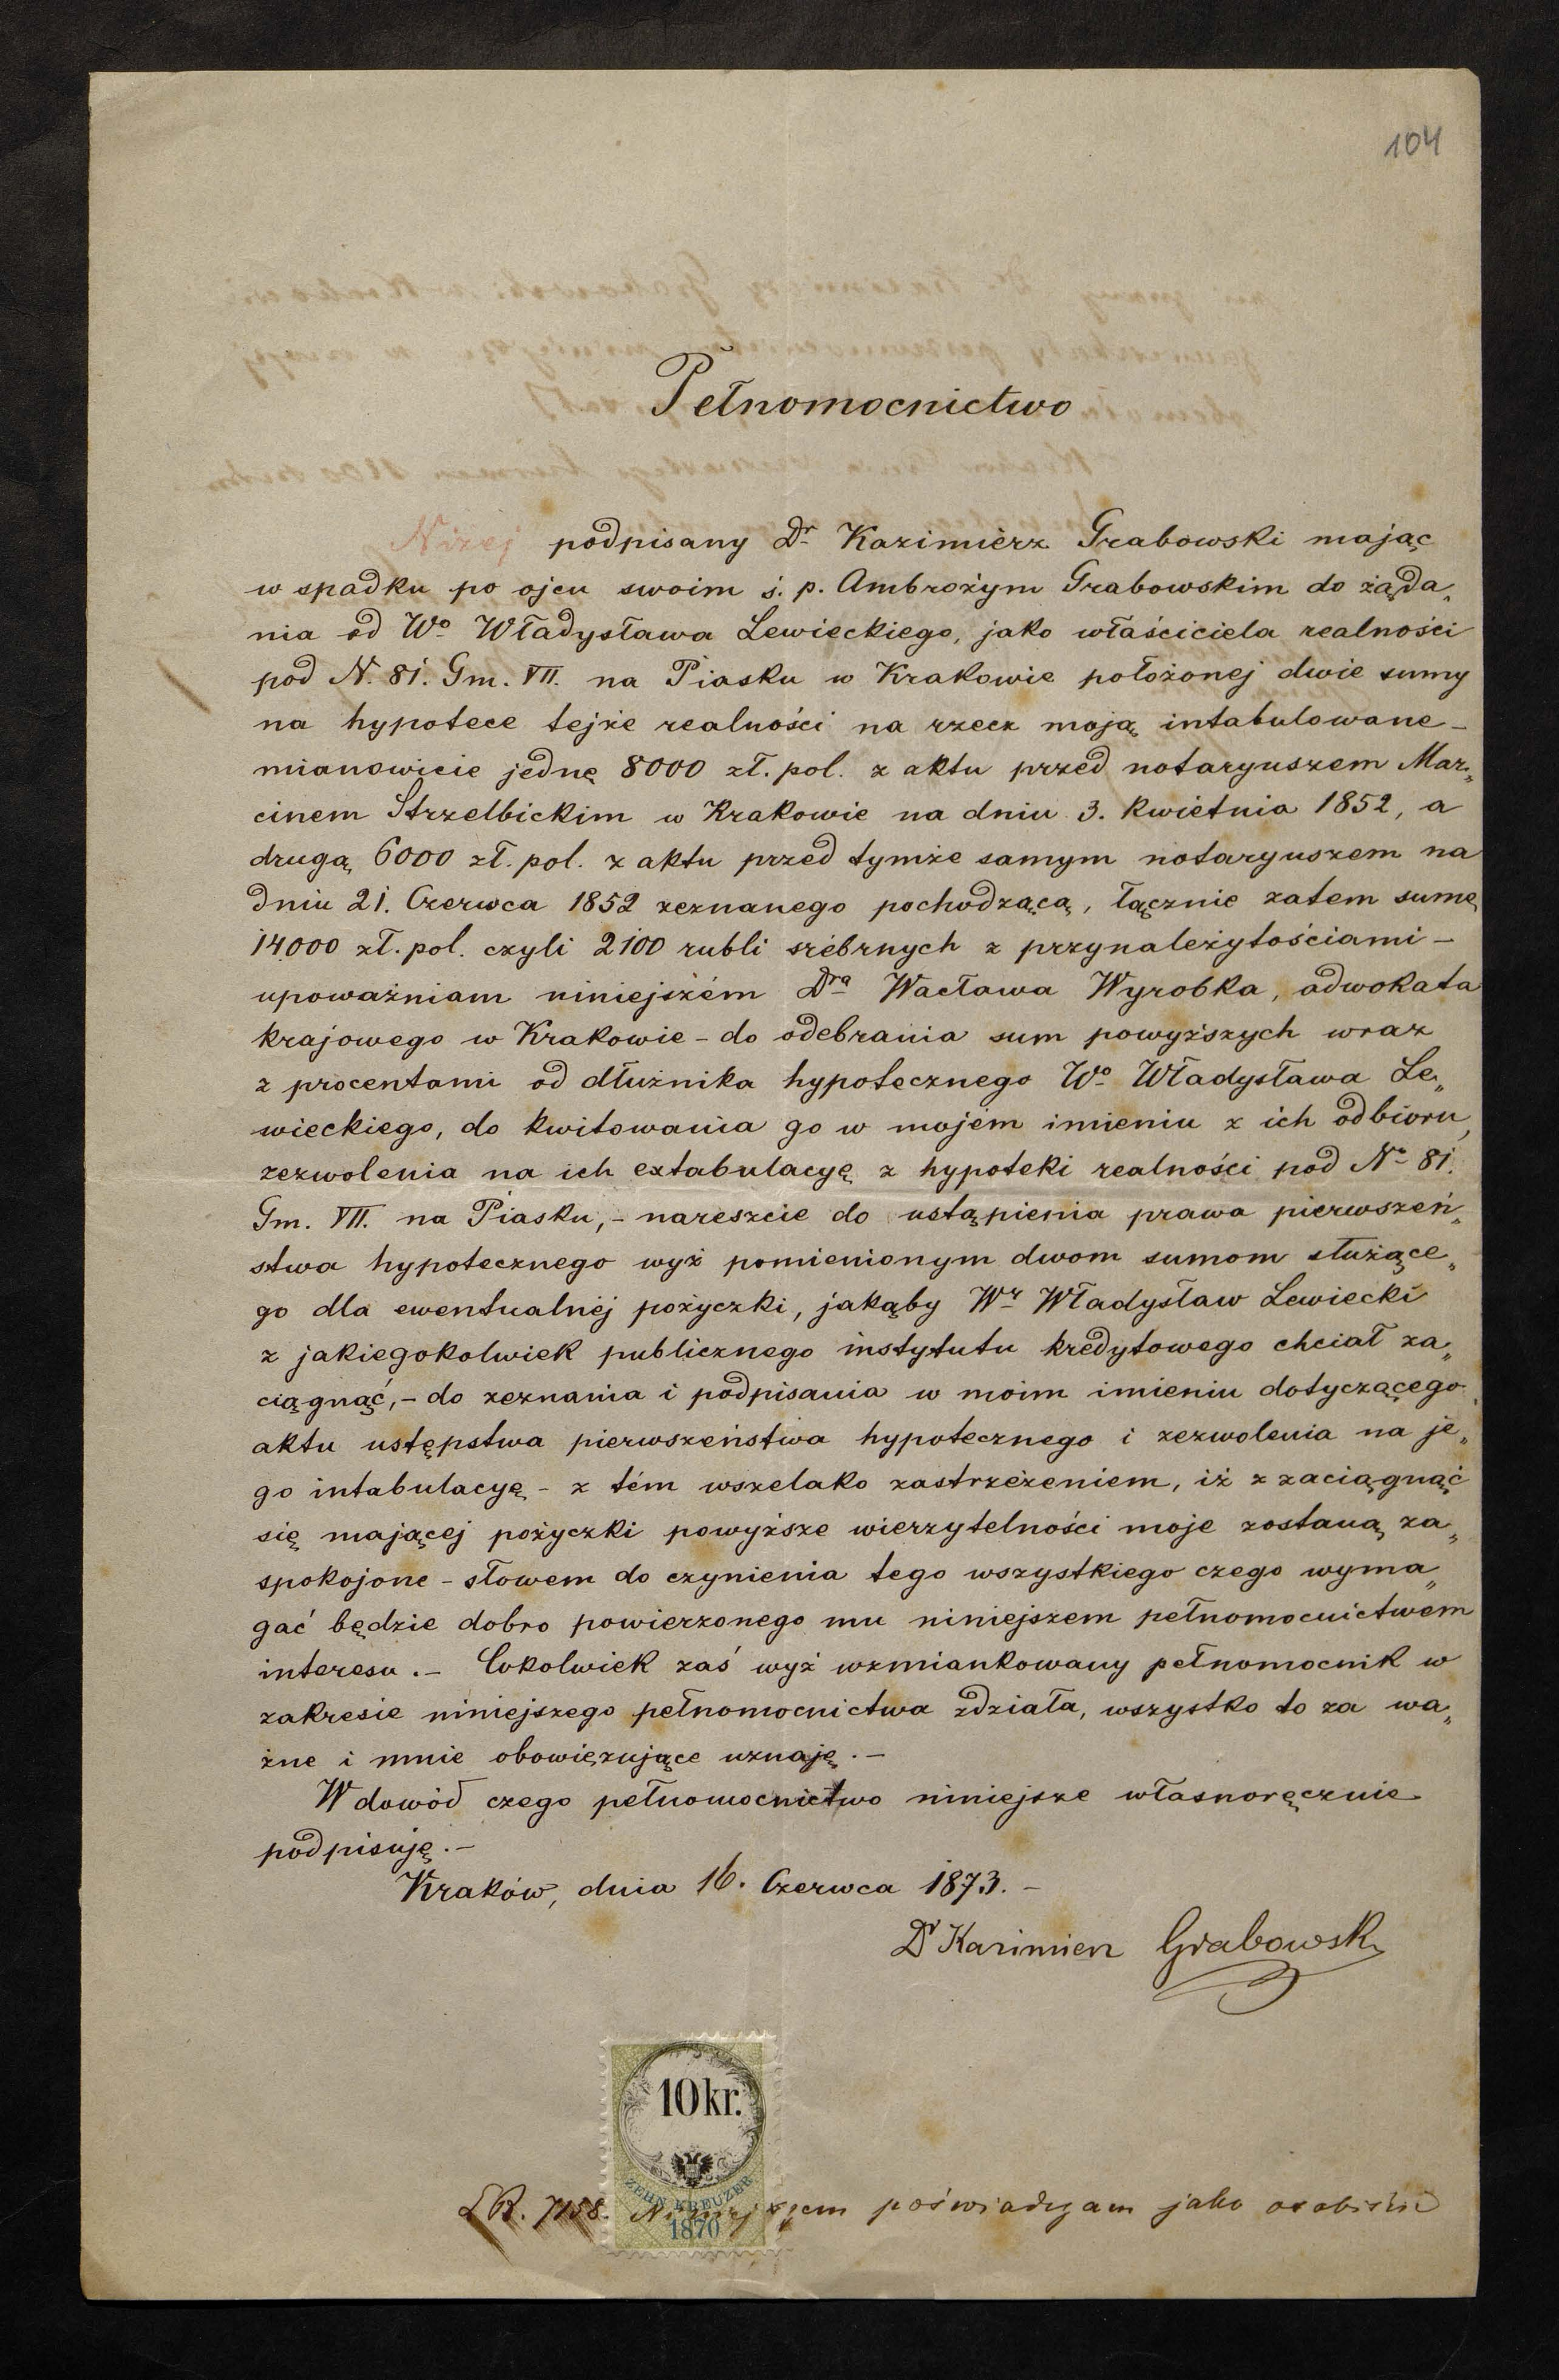 104
Pełnomocnictwo
Niżej podpisany Dr Kazimiérz Grabowski mając
w spadku po ojcu swoim ś. p. Ambrożym Grabowskim do żąda„
nia od Wo Władysława Lewieckiego, jako właściciela realności
pod N. 81. Gm. VII. na Piasku w Krakowie położonej dwie sumy
na hypotece tejże realności na rzecz moją intabulowane –
mianowicie jednę 8000 zł. pol. z aktu przed notaryuszem Mar„
cinem Strzelbickim w Krakowie na dniu 3. Kwietnia 1852, a
drugą 6000 zł. pol. z aktu przed tymże samym notaryuszem na
dniu 21. Czerwca 1852 zeznanego pochodzącą, łącznie zatem sumę
14000 zł. pol. czyli 2100 rubli srébrnych z przynależytościami –
upoważniam niniejszém Dra Wacława Wyrobka, adwokata
krajowego w Krakowie – do odebrania sum powyższych wraz
z procentami od dłużnika hypotecznego Wo Władysława Le„
wieckiego, do kwitowania go w mojém imieniu z ich odbioru,
zezwolenia na ich extabulacyę z hypoteki realności pod No 81.
Gm. VII. na Piasku, – nareszcie do ustąpienia prawa pierwszeń„
stwa hypotecznego wyż pomienionym dwom sumom służące„
go dla ewentualnéj pożyczki, jakąby Wr Władysław Lewiecki
z jakiegokolwiek publicznego instytutu kredytowego chciał za„
ciągnąć, – do zeznania i podpisania w moim imieniu dotyczącego
aktu ustępstwa pierwszeństwa hypotecznego i zezwolenia na je„
go intabulacyę – z tém wszelako zastrzeżeniem, iż z zaciągnąć
się mającej pożyczki powyższe wierzytelności moje zostaną za„
spokojone – słowem do czynienia tego wszystkiego czego wyma„
gać będzie dobro powierzonego mu niniejszem pełnomocnictwem
interesu. – Cokolwiek zaś wyż wzmiankowany pełnomocnik w
zakresie niniejszego pełnomocnictwa zdziała, wszystko to za wa„
żne i mnie obowięzujące uznaję. –
W dowód czego pełnomocnictwo niniejsze własnoręcznie
podpisuję. –
Kraków, dnia 16. Czerwca 1873. –
Dr Kazimierz Grabowski
10 kr.
ZEHN KREUZER
1870
LR. 7158. Niniejszem poświadczam jako osobiście